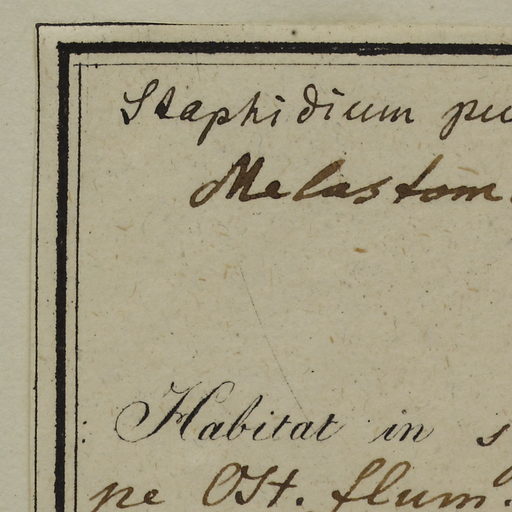 Staphidium pu
Melastom
Habitat in s
pe Ost. flum.